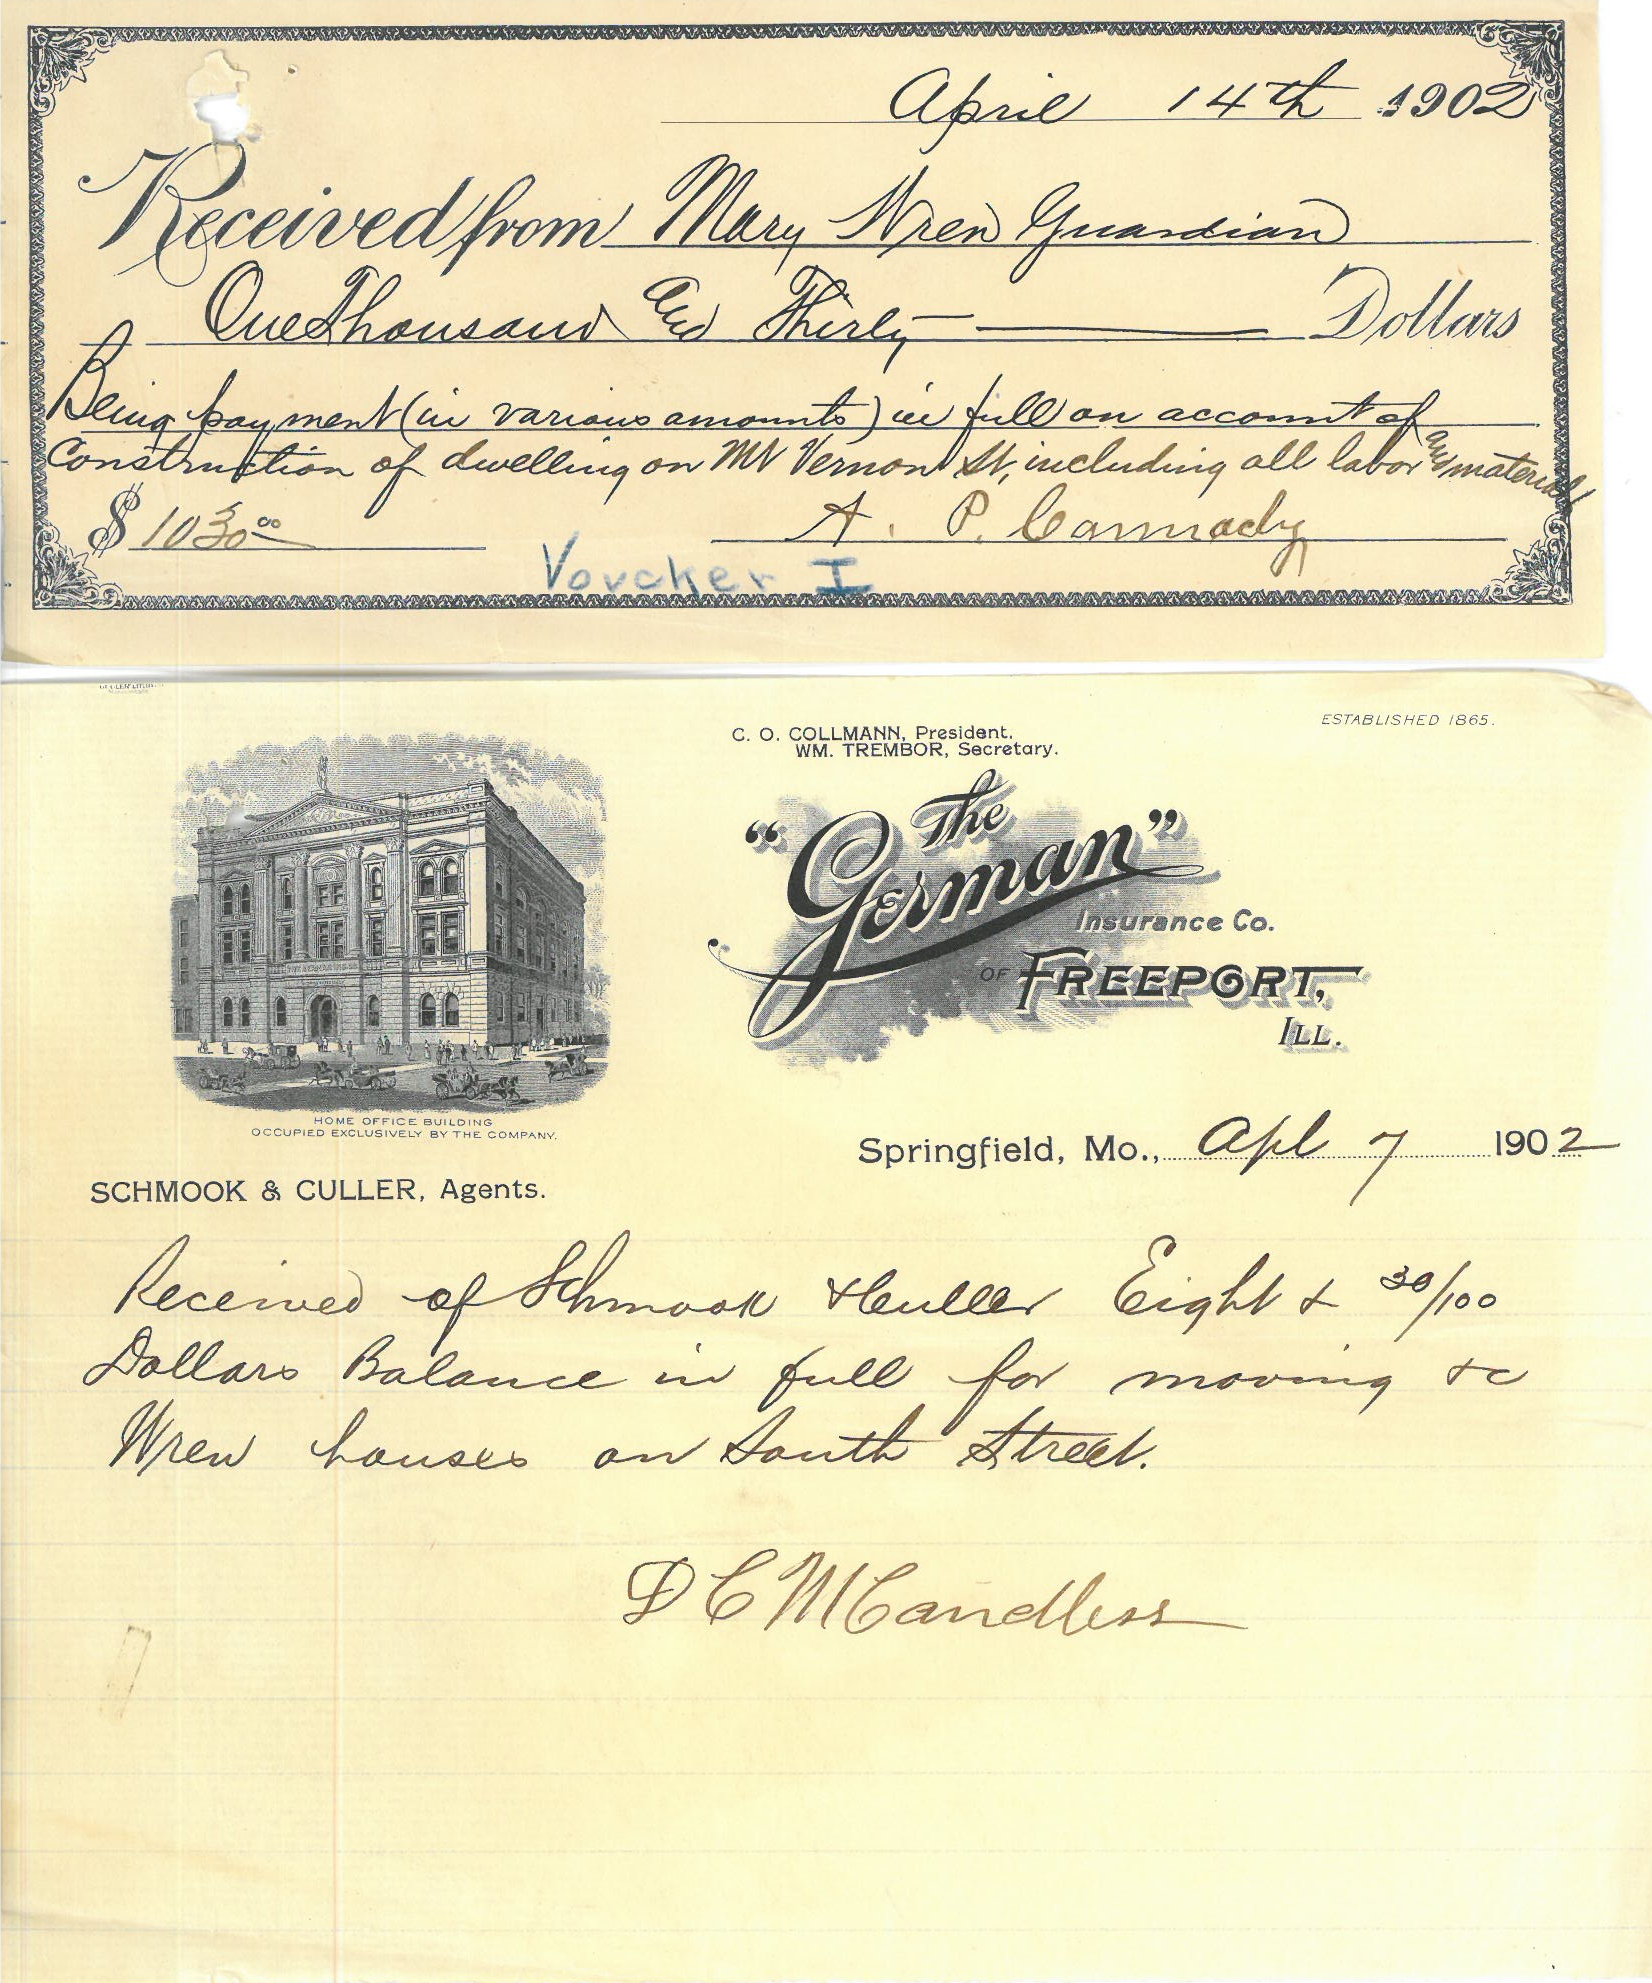 April 14th 1902
Received from Mary Wren Guardian
One Thousand And Thirty Dollars
Being payment (in various amounts) in full on account of
Construction of dwelling on Mt Vernon St, including all labor and material
$ 1030.00 A. P. Cammady
Voucker I
ESTABLISHED 1865.
C. O. COLLMANN, President.
WM. TREMBOR, Secretary.
"The German"
Insurance Co.
OF FREEPORT,
ILL.
HOME OFFICE BUILDING
OCCUPIED EXCLUSIVELY BY THE COMPANY.
Springfield, Mo., Apl 7 1902
SCHMOOK & CULLER, Agents.
Received of Schmook & Culler Eight & 30/100
Dollars Balance in full for moving &c
Wren houses on South Street.
D C McCandless